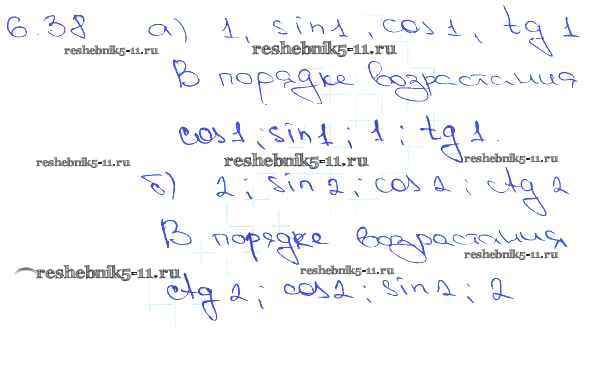 6.38 а) 1, sin1, cos1, tg 1
reshebnik5-11.ru reshebnik5-11.ru
В порядке возрастания
cos1; sin1; 1; tg1.
reshebnik5-11.ru reshebnik5-11.ru reshebnik5-11.ru
б) 2; sin2; cos2; ctg 2
В порядке возрастания
reshebnik5-11.ru
reshebnik5-11.ru reshebnik5-11.ru
ctg 2; cos2; sin2; 2